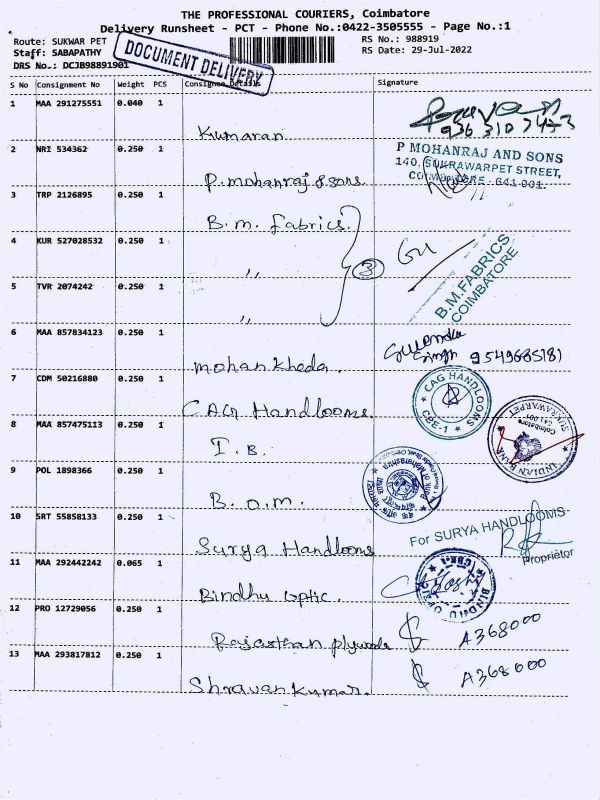 THE PROFESSIONAL COURIERS, Coimbatore
Delivery Runsheet - PCT - Phone No.:0422-3505555 - Page No.:1
Route: SUKWAR PET
RS No.: 988919
Staff: SABAPATHY
RS Date: 29-Jul-2022
DRS No.: DCJB98891901
DOCUMENT DELIVERY
S No Consignment No Weight PCS Consignee Details Signature
1 MAA 291275551 0.040 1
Kumaran
936 310 7453
2 NRI 534362 0.250 1
P MOHANRAJ AND SONS
140, SUKRAWARPET STREET,
COIMBATORE - 641 001.
P. mohanraj & sons
3 TRP 2126895 0.250 1
B.m. Fabrics
4 KUR 527028532 0.250 1
,, 3
B.M.FABRICS
COIMBATORE
5 TVR 2074242 0.250 1
,,
6 MAA 857834123 0.250 1
mohan khoda.
Singh 9549685181
7 CDM 50216880 0.250 1
CAG HANDLOOMS
CBE-1
CAG Handlooms
8 MAA 857475113 0.250 1
I.B.
INDIAN BANK
SUKRAWARPET
Coimbatore
641 001
9 POL 1898366 0.250 1
Bank of Maharashtra
B.O.M.
10 SRT 55858133 0.250 1
For SURYA HANDLOOMS
Proprietor
Surya Handlooms
11 MAA 292442242 0.065 1
BINDHU OPTIC
CBE-1
Bindhu optic.
12 PRO 12729056 0.250 1
Rajasthan plywoods
A368000
13 MAA 293817812 0.250 1
A368000
Shravan kumar.